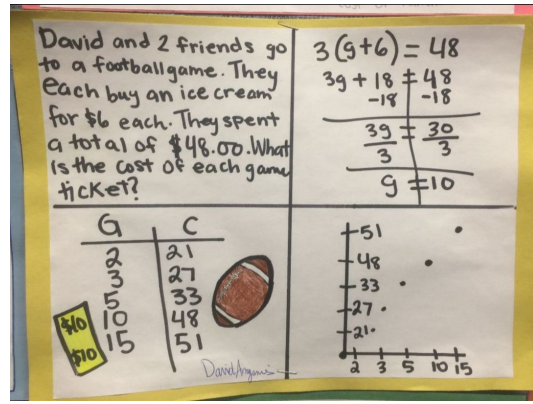 David and 2 friends go
to a football game. They
each buy an ice cream
for $6 each. They spent
a total of $48.00. What
is the cost of each game
ticket?
3(g+6) = 48
3g + 18 = 48
-18 -18
3g = 30
3 3
g = 10
G C
2 21
3 27
5 33
10 48
15 51
$10
$10
David
51
48
33
27
21
2 3 5 10 15